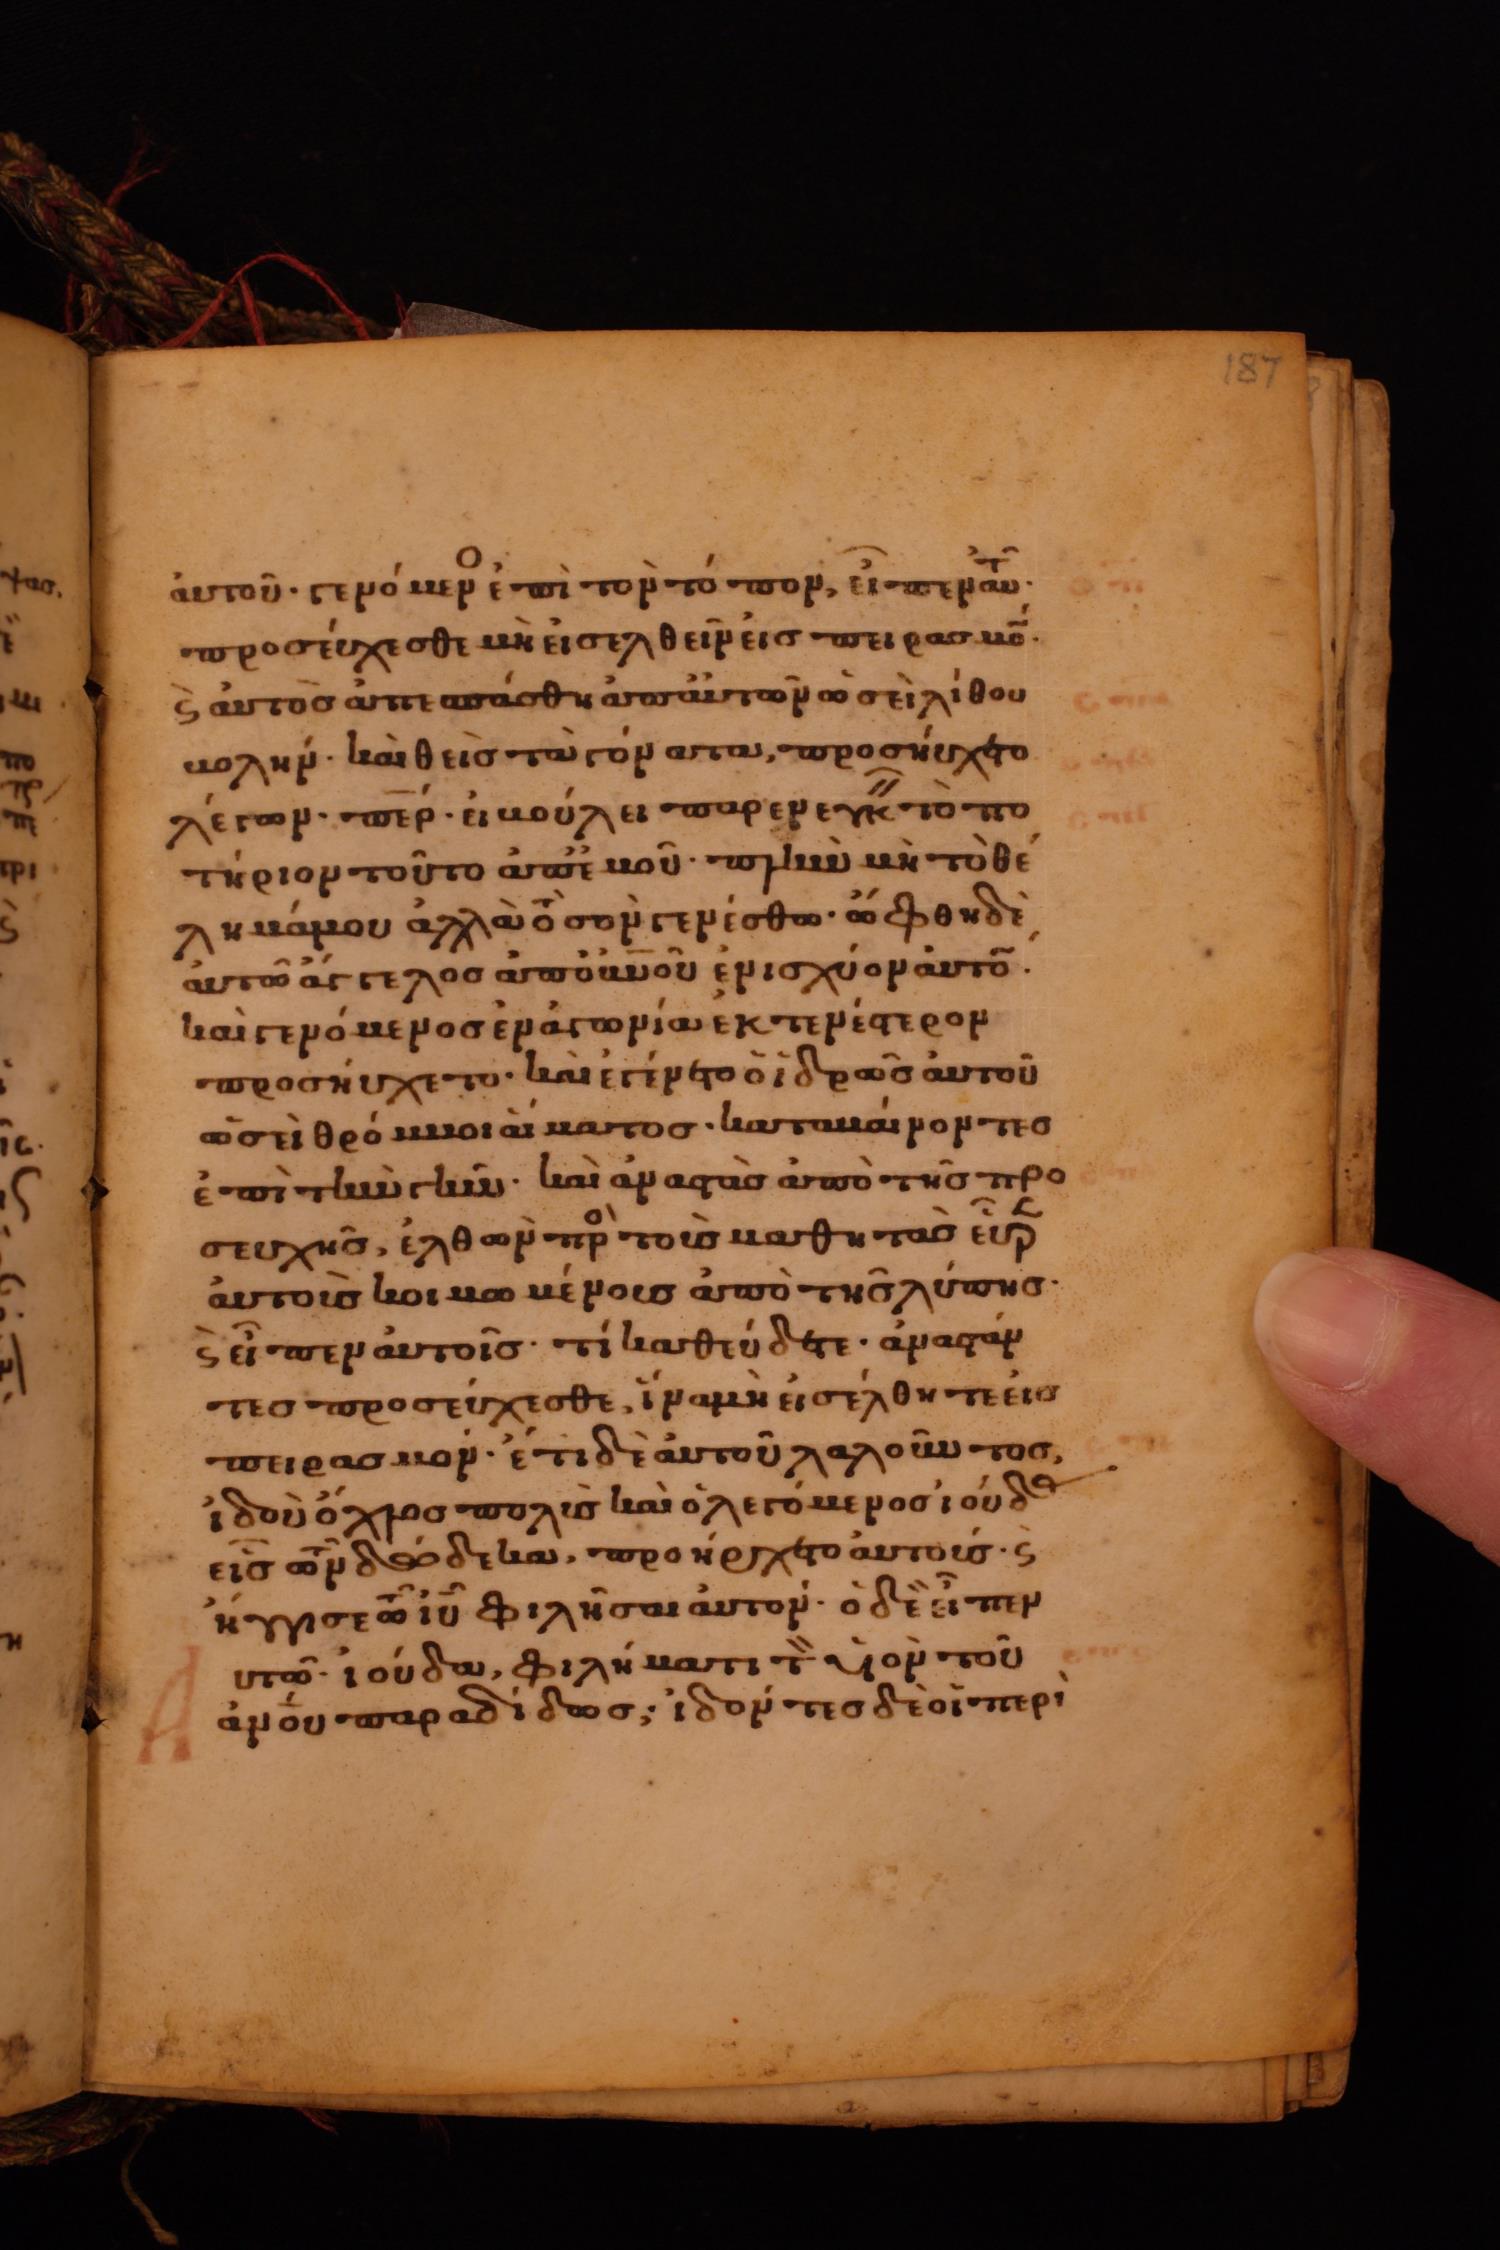 187
ἀυτοῦ· γενόμεν͑ο ἐπὶ τὸν τόπον, εἶπεν ἀυτ͂·
προσέυχεσθε μὴ ἐισελθεῖν ἐις πειρασμό̄·
ϛ̀ ἀυτὸς ἀπεσπάσθη ἀπ ἀυτῶν ὡσεὶ λίθου
βολήν· καὶ θεὶς τὰ γόνατα, προσηύχετο
λέγων· πε̄ρ· ἐι βούλει παρενεγκ τὸ πο
τήριον τοῦτο ἀπ ἐμοῦ· πλὴν μὴ τὸ θέ
λημά μου ἀλλὰ τὸ σὸν γενέσθω· ὤφθη δὲ
ἀυτῶ ἄγγελος ἀπ ὀυνοῦ ἐνισχύον ἀυτό̄·
καὶ γενόμενος ἐν ἀγωνία ἐκτενέστερον
προσηύχετο· καὶ ἐγένετο ὁ ἱδρῶς ἀυτοῦ
ὡσεὶ θρόμβοι ἅιματος· καταβάινοντες
ἐπὶ τὴν γῆν· καὶ ἀναστὰς ἀπὸ τῆς προ
σευχῆς, ἐλθὼν πρ̀ο τοὺς μαθητὰς εὗρ
ἀυτοὺς κοιμωμένους ἀπὸ τῆς λύπης·
ϛ̀ εἶπεν ἀυτοῖς· τί καθεύδετε· ἀναστάν
τες προσέυχεσθε, ἵνα μὴ ἐισέλθητε ἐις
πειρασμόν· ἔτι δὲ ἀυτοῦ λαλοῦντος,
ἰδοὺ ὄχλος πολὺς καὶ ὁ λεγόμενος ἰούδα
εἷς τῶν δώδεκα, προήρχετο ἀυτούς· ϛ̀
ἤγγισε τῶ ἰῦ φιλῆσαι ἀυτόν· ὁ δὲ ἰ̄ς εἶπεν
Α υτῶ· ἰούδα, φιλήματι τ̀ ὑιὸν τοῦ
ἀνόυ παραδίδως; ἰδόντες δὲ ὁι περὶ